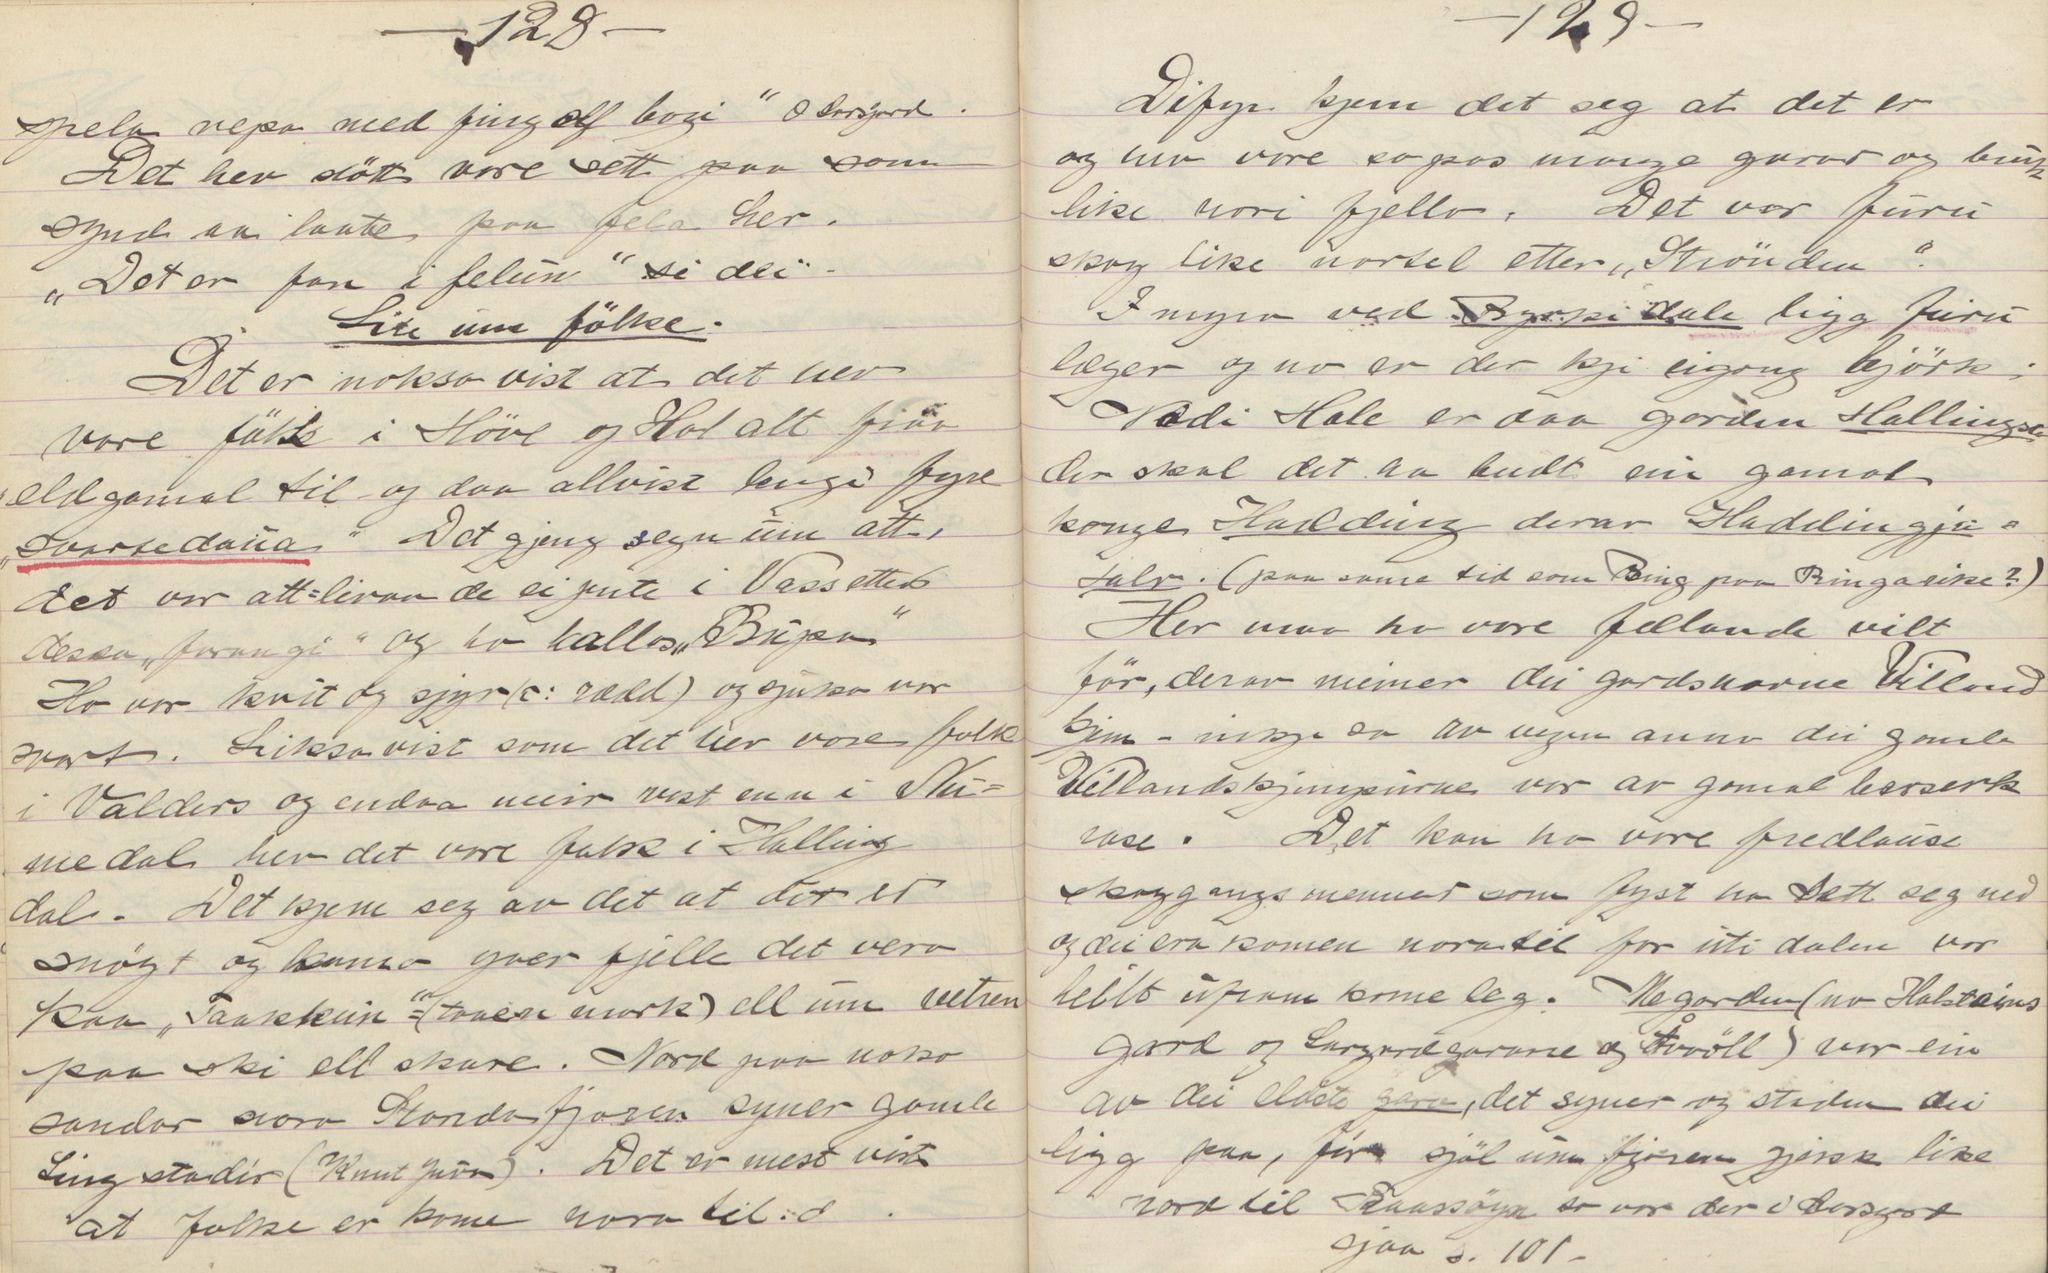 -128-
spela vepa med fing olf bogi" O Larsgard.
Det hev stött vore sett paa som
synd aa laate paa fela her.
"Det er fan i felün" si dei.
Lite üm fölke.
Det er noksovist at det hev
vore fölk i Höve og Hol alt fraa
eldgamal til og daa allvist lengi fyre
"svartedaüa" Det gjeng segn üm att,
det var att-livan de ei jente i Vassetten
dessa "farangi" og ho kallas "Rüpa"
Ho var kvit og sjyr (ɔ: rædd) og sjuka var
svart. Liksovist som det hev vore folk
i Valders og endaa meir vest enn i Nü=
medal hev det vore folk i Halling
dal. Det kjem seg av det at det er
snögt og koma yver fjelle det vera
paa "Taakkün" = (taaen mark) ell üm vetren
paa ski ell skare. Nord paa noko
sandar nora Strandafjoren syner gamle
Ting stadir (Knut Jüva). Det er mest vist
at folke er kome nora til: d
-129-
Difyr kjem det seg at det er
og hev vore sopas mange garar og brük
like nori fjello. Det var fürü
skog like nortel etter "Strönden".
I myra ved Rypidale ligg fürü
læger og no er der kji eigong björk;
Nedi Hole er daa garden Hallingst
der skal det ha budt ein gamal
konge Hadding derav Haddingju=
dalr. (paa same tid som Ring paa Ringarike?)
Her maa ha vore fælande vilt
för, derav meiner dei gardsnavne Villand
kjem - ikkje so av vegen anna dei gamle
Villandskjempürne var av gamal berserk
rase. Det kan ha vore fredlause
skoggangsmenner som fyst ha sett seg ned
og dei era komen nora til for üti dalen var
heilt üfram komeleg. Megarden (no Holsteins
gard og Largardgarane og Åvöll) var ein
av dei eldste gara, det syner og staden dei
ligg paa, för sjöl üm fjoren gjekk like
nord til Raassöyn so var der i Larsgard
sjaa s. 101-